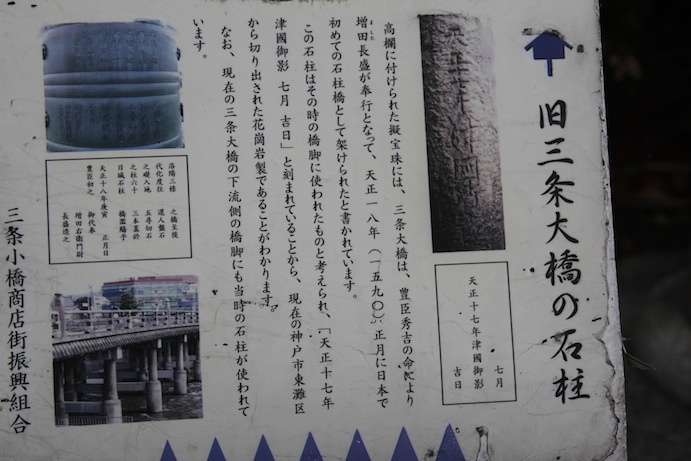 旧三条大橋の石柱
天正十七年津國御影
七月
吉日
高欄に付けられた擬宝珠には、三条大橋は、豊臣秀吉の命により
増田長盛が奉行となって、天正一八年（一五九〇）正月に日本で
ました
初めての石柱橋として架けられたと書かれています。
この石柱はその時の橋脚に使われたものと考えられ、「天正十七年
津國御影 七月 吉日」と刻まれていることから、現在の神戸市東灘区
から切り出された花崗岩製であることがわかります。
なお、現在の三条大橋の下流側の橋脚にも当時の石柱が使われて
います。
洛陽三條 之橋至後
代化度往 還人盤石
之礎入地 五尋切石
之柱六十 三本蓋於
日域石柱 橋濫觴乎
天正十八年庚寅 正月日
豊臣初之 御代奉
増田右衛門尉
長盛造之
三条小橋商店街振興組合